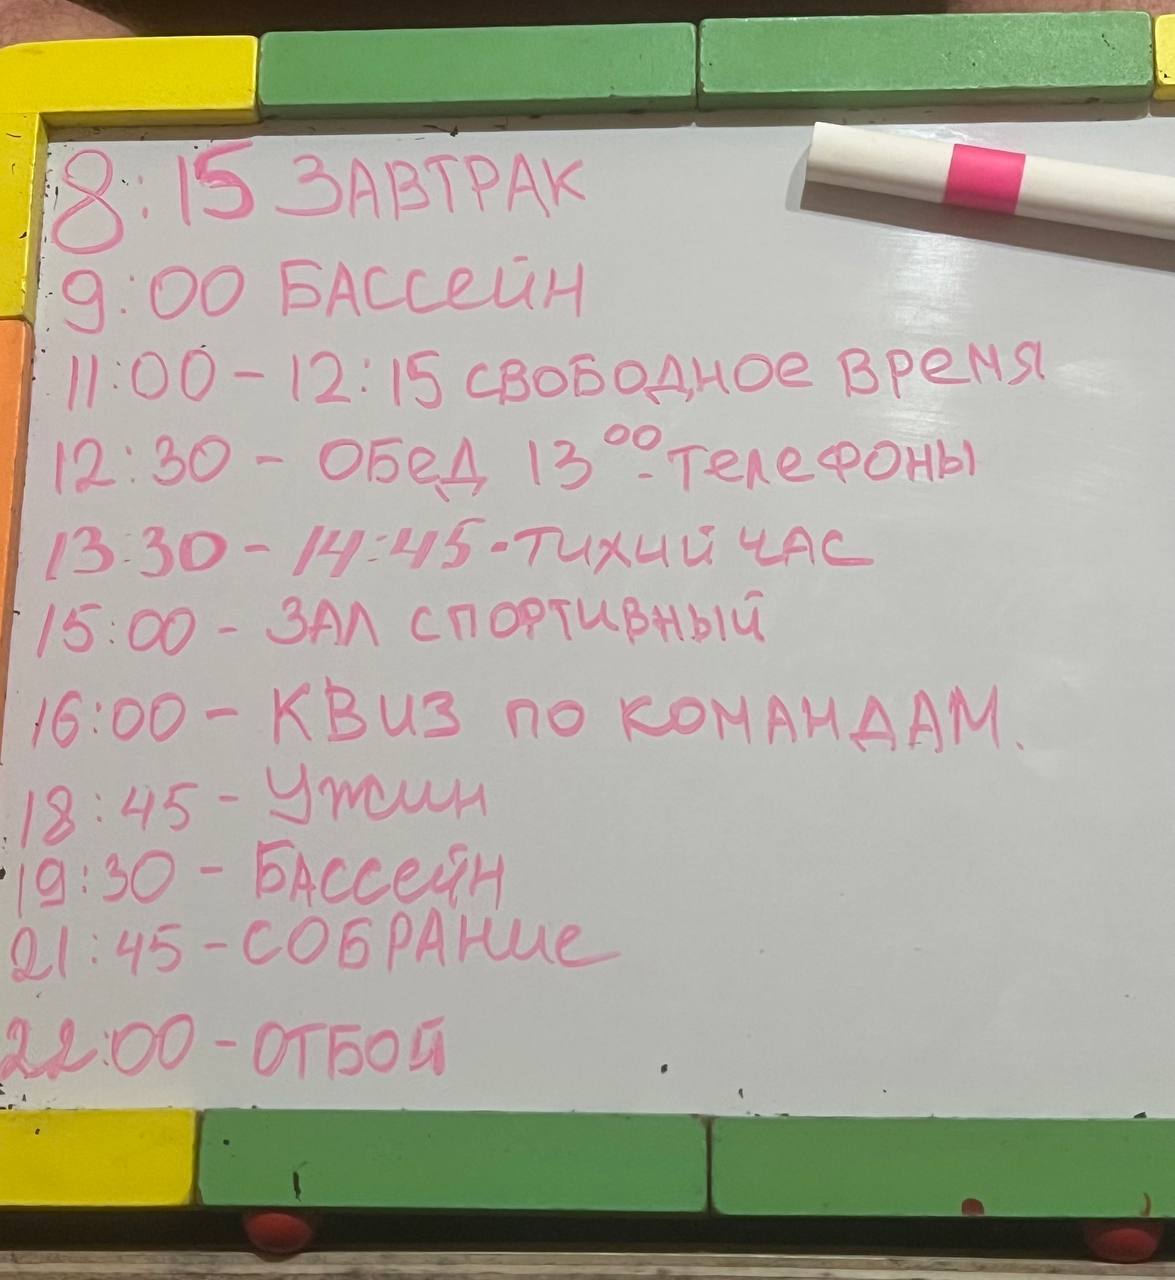 8:15 ЗАВТРАК
9:00 БАССЕЙН
11:00 - 12:15 СВОБОДНОЕ ВРЕМЯ
12:30 - ОБЕД 13⁰⁰- ТЕЛЕФОНЫ
13:30 - 14:45 - ТИХИЙ ЧАС
15:00 - ЗАЛ СПОРТИВНЫЙ
16:00 - КВИЗ ПО КОМАНДАМ.
18:45 - УЖИН
19:30 - БАССЕЙН
21:45 - СОБРАНИЕ
22:00 - ОТБОЙ